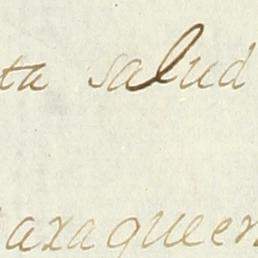 ta salud
axaqueen